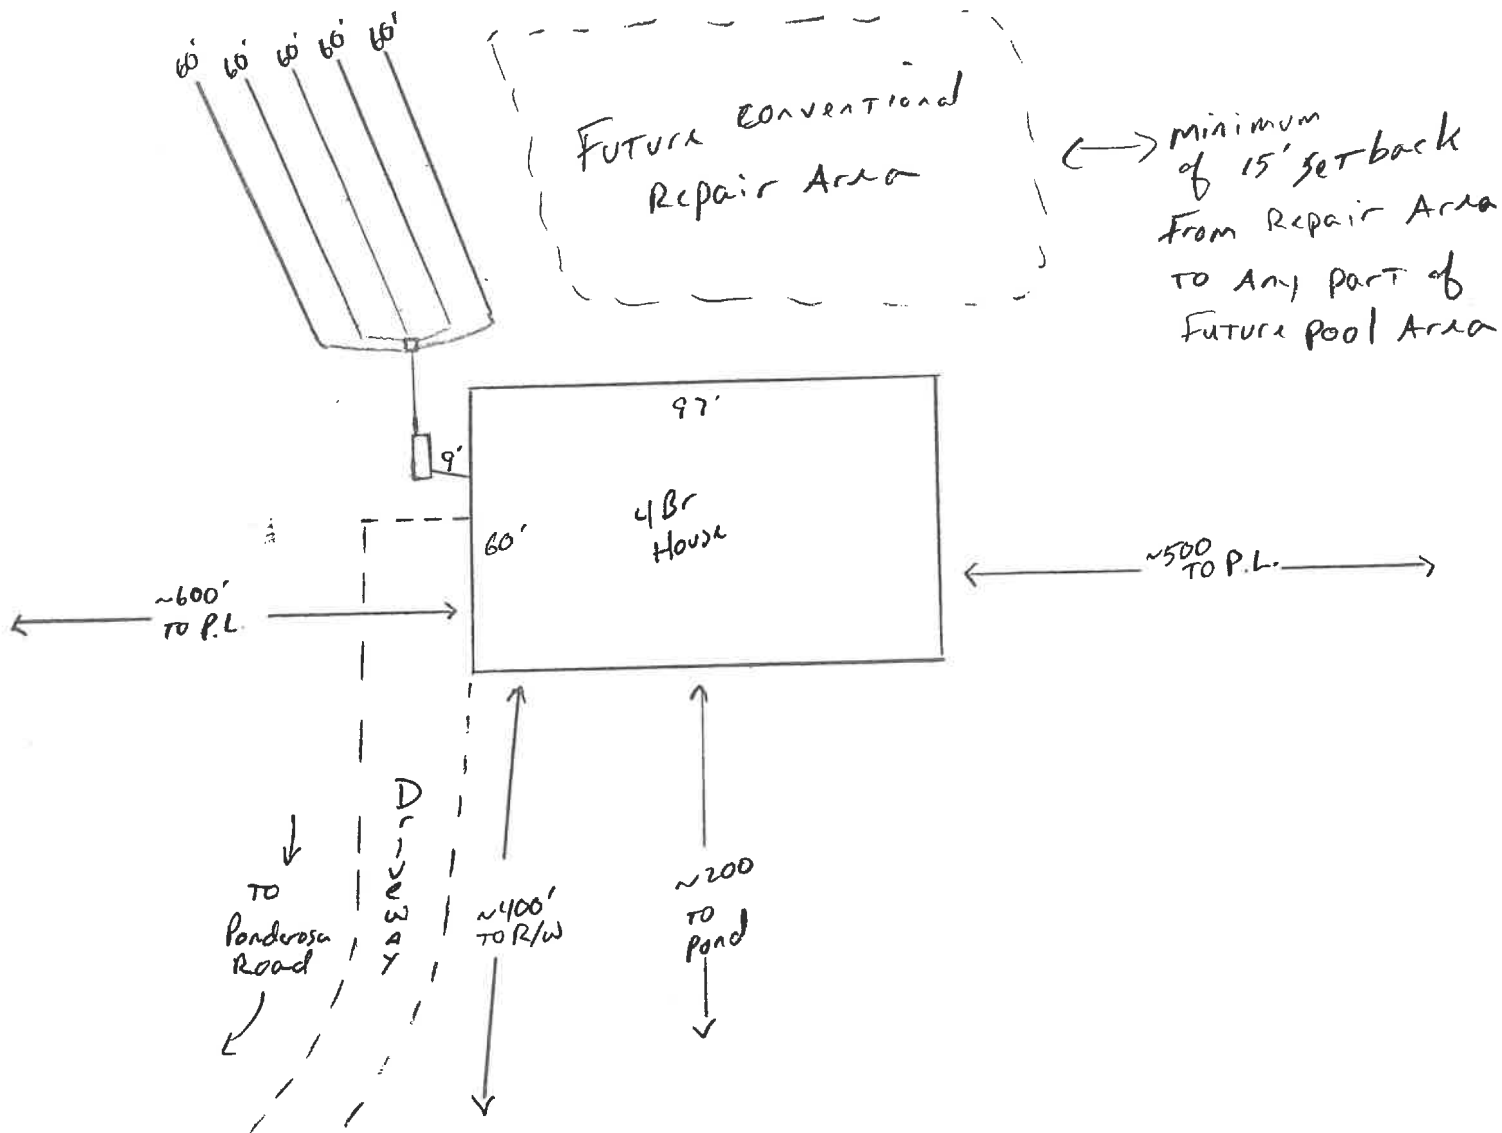 60' 60' 60' 60' 60'
Future Conventional
Repair Area
minimum
of 15' setback
From Repair Area
TO Any part of
Future pool Area
97'
9'
60'
4Br
House
~600'
TO P.L.
~500
TO P.L.
Driveway
TO
Ponderosa
Road
~400'
TO R/W
~200
TO
Pond